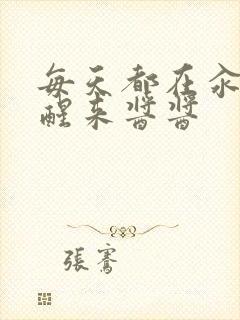 每天都在汆
醒来酱酱
張騫